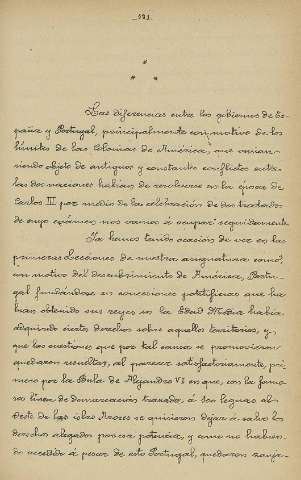 -221-
*
* *
Las diferencias entre los gobiernos de Es-
paña y Portugal, principalmente con motivo de los
límites de las Colonias de América, que venían
siendo objeto de antiguos y constantes conflictos entre
las dos naciones habían de resolverse en la época de
Carlos III por medio de la celebración de dos tratados
de cuyo exámen nos vamos á ocupar seguidamente.
Ya hemos tenido ocasión de ver en las
primeras lecciones de nuestra asignatura como,
con motivo del descubrimiento de América, Portu-
gal fundándose en concesiones pontificias que ha-
bían obtenido sus reyes en la Edad Media había
adquirido ciertos derechos sobre aquellos territorios, y
que las cuestiones que por tal causa se promovieron
quedaron resueltas, al parecer satisfactoriamente, pri-
mero por la Bula de Alejandro VI en que, con la famo-
sa línea de demarcación trazada, á cien leguas al
Oeste de las islas Azores se quisieron dejar á salvo los
derechos alegados por cada potencia, y como no habien-
do accedido á pesar de esto Portugal, quedaron zanja-